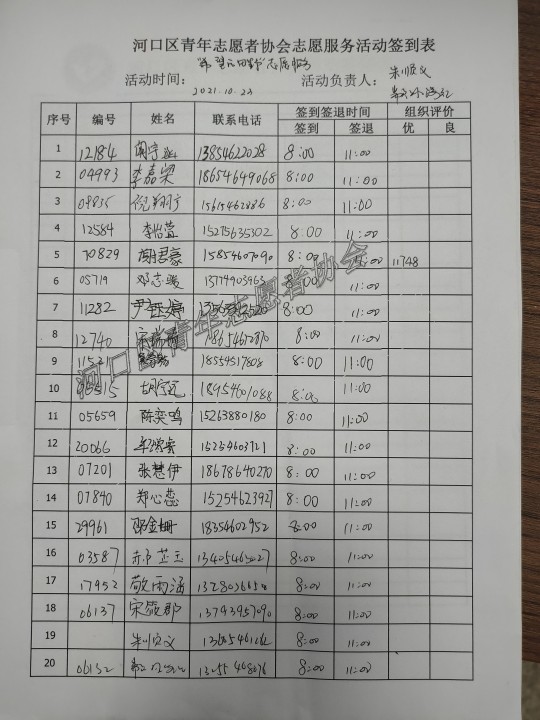 河口区青年志愿者协会志愿服务活动签到表
"希望小田野"志愿服务
活动时间: 2021.10.22 活动负责人:
序号 编号 姓名 联系电话 签到签退时间 组织评价
签到 签退 优 良
1 12184 13854622028 8:00 11:00
2 04993 李嘉梁 18654649068 8:00 11:00
3 08835 倪翔宁 15615462886 8:00 11:00
4 12584 李怡萱 15275635302 8:00 11:00
5 70829 胡君豪 15854607090 8:00 11:00 11748
6 05719 邓志骏 13774903963 8:00 11:00
7 11282 尹钰婷 8:00 11:00
8 12740 18654612870 8:00 11:00
9 18554517808 8:00 11:00
10 胡宁远 18954601088 8:00 11:00
11 05659 陈奕鸣 15263880180 8:00 11:00
12 20066 15254603721 8:00 11:00
13 07201 张慧伊 18678640270 8:00 11:00
14 07840 郑心蕊 15254623927 8:00 11:00
15 29961 邵金珊 18354602952 8:00 11:00
16 03587 13405465027 8:00 11:00
17 17952 敬雨涵 8:00 11:00
18 06137 宋筱郡 13793957090 8:00 11:00
19 8:00 11:00
20 06132 8:00 11:00
河口区青年志愿者协会